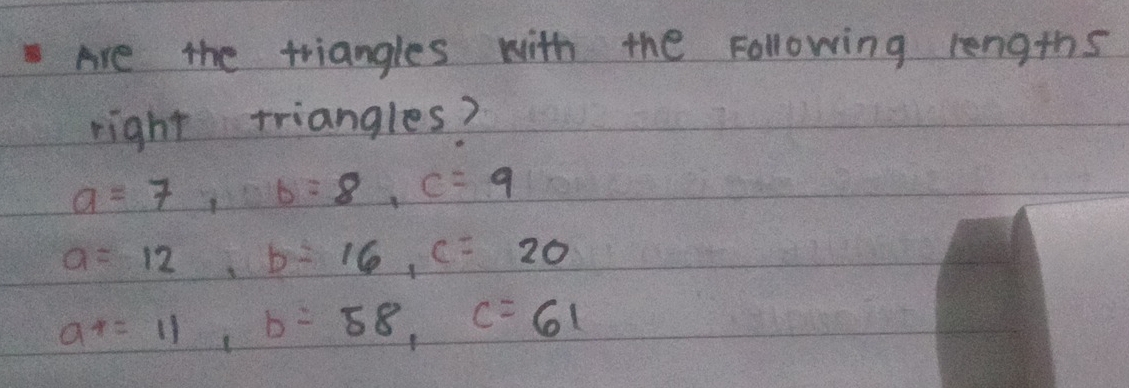 Are the triangles with the Following lengths
right triangles?
a = 7, b = 8, c = 9
a = 12, b = 16, c = 20
a+= 11, b = 58, c = 61